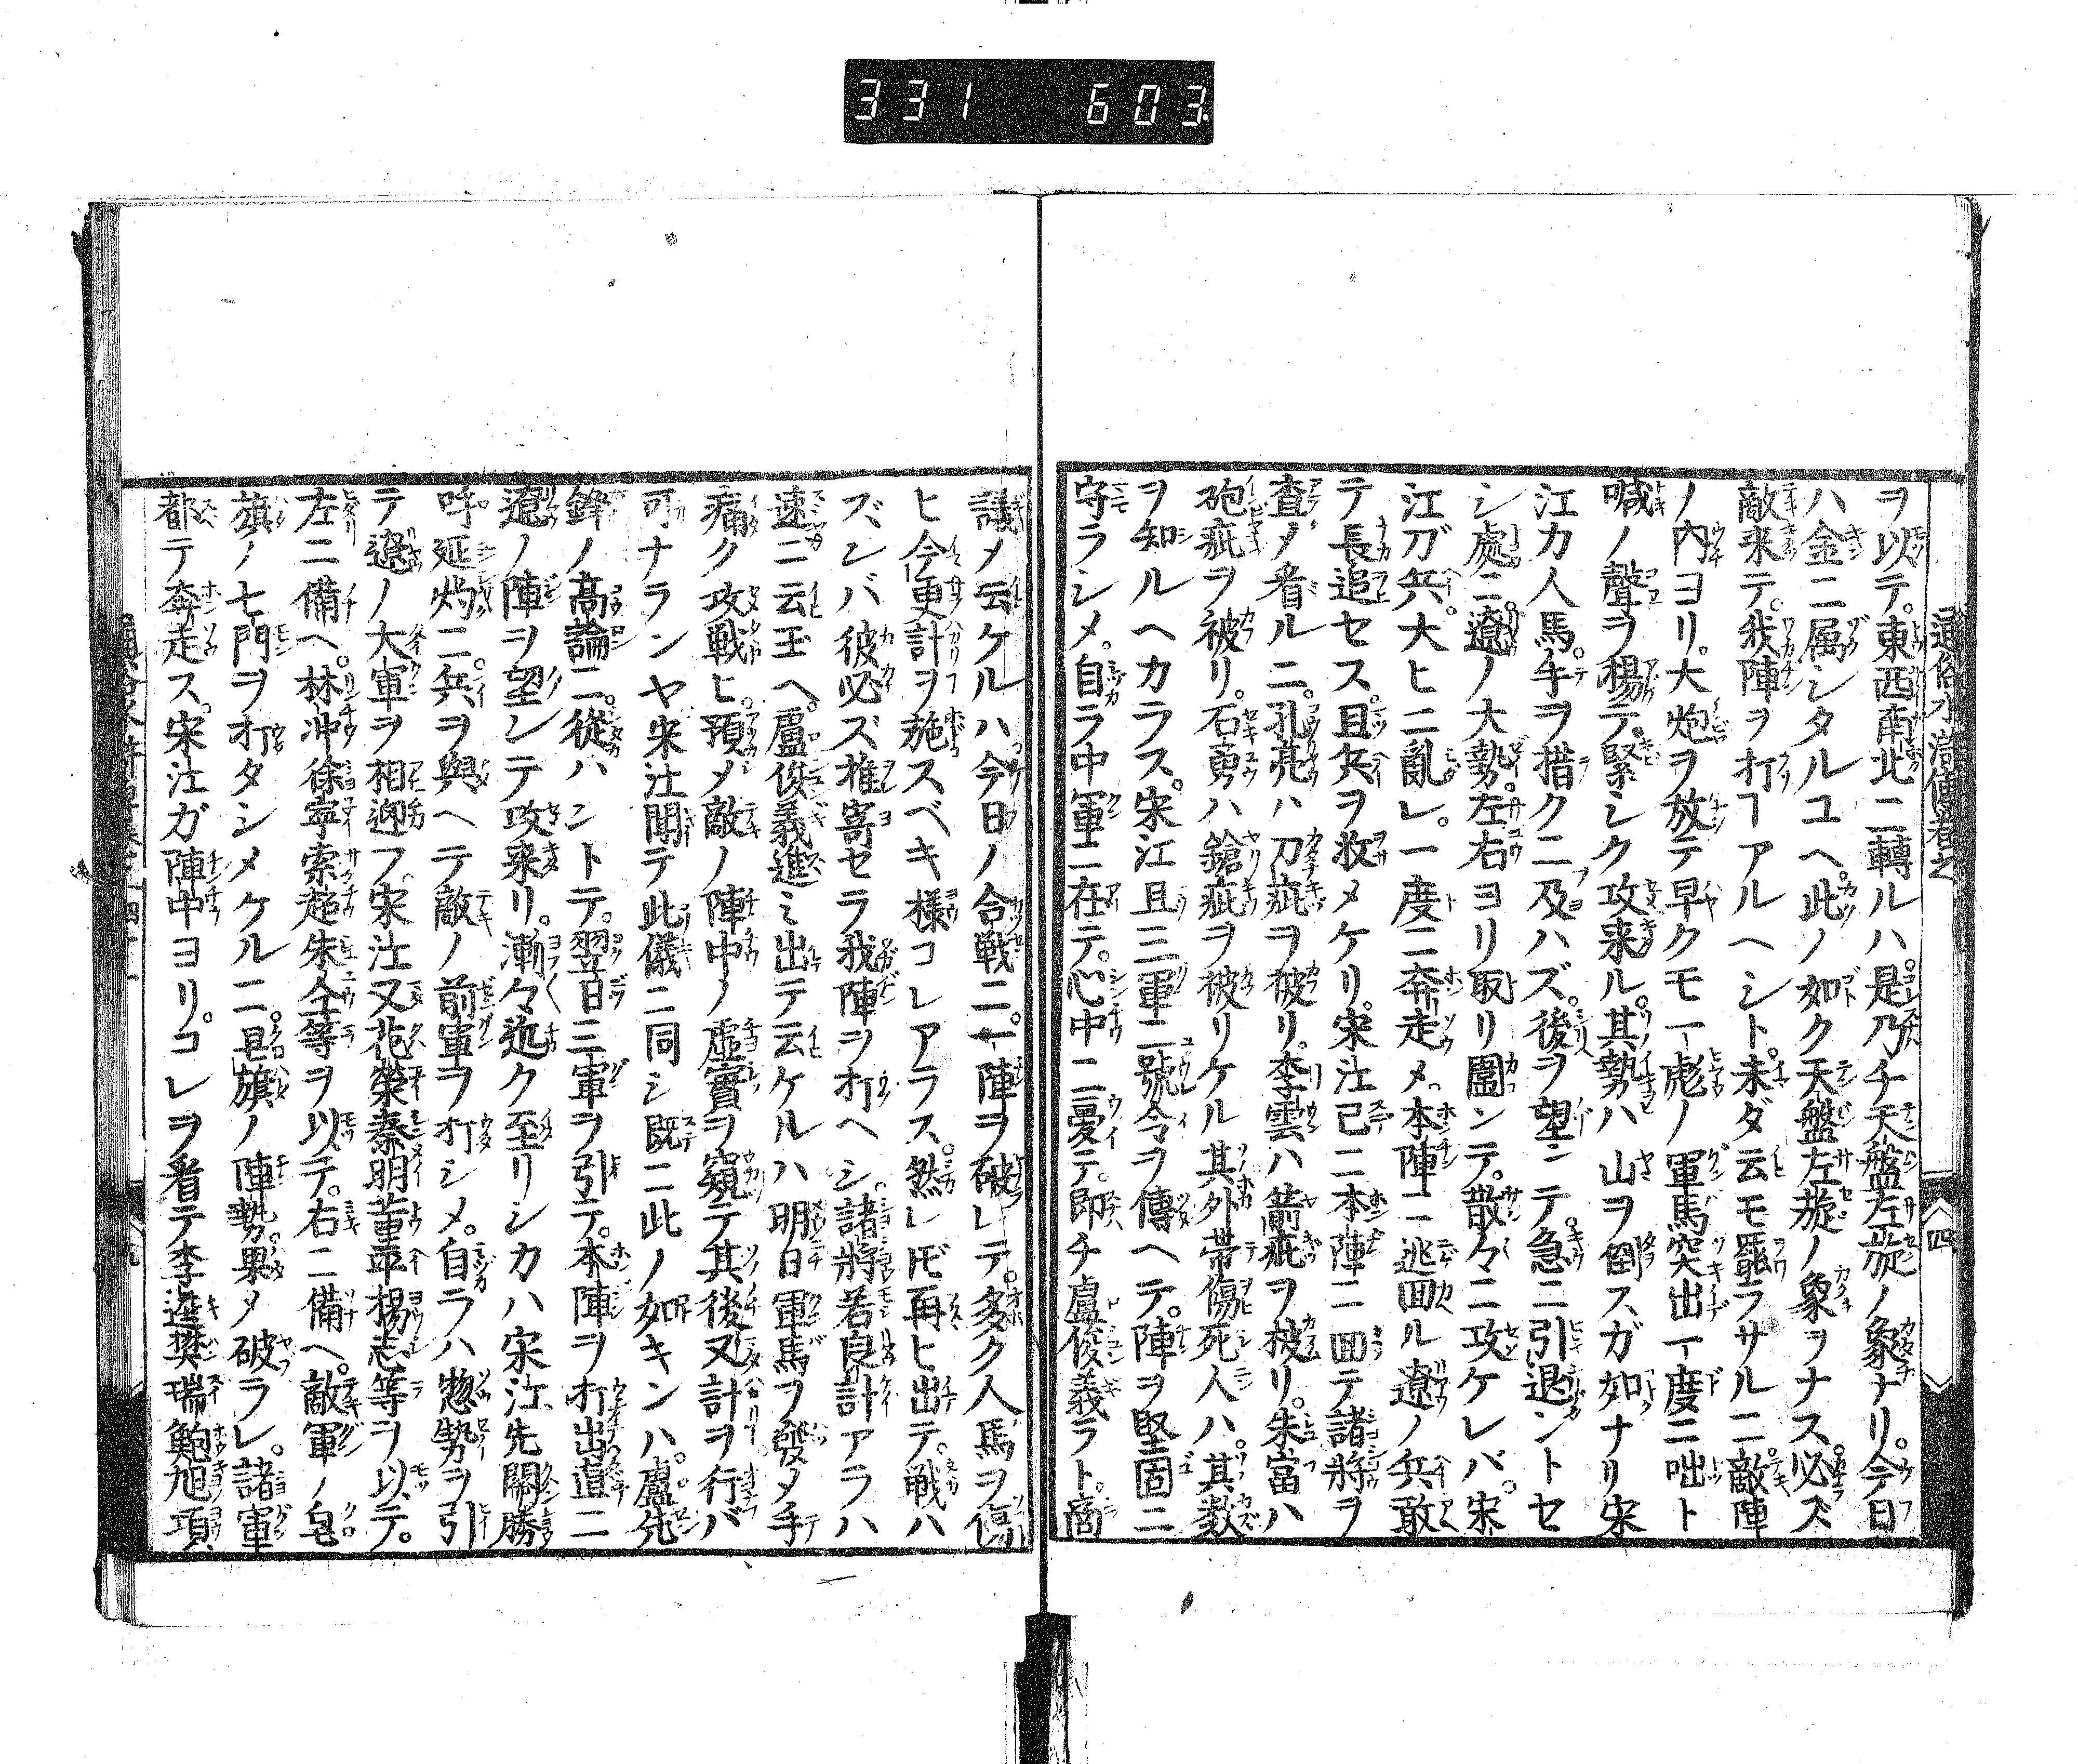 331 603
通俗水滸傳卷之
ヲ以テ。東西南北ニ轉ルハ。是乃チ天盤左旋ノ象ナリ。今日
ハ金ニ属シタルユヘ。此ノ如ク天盤左旋ノ象ヲナス必ズ
敵来テ。我陣ヲ打ヿアルヘシト。未ダ云モ罷ラサルニ敵陣
ノ內ヨリ。大炮ヲ放テ早クモ一彪ノ軍馬突出一度ニ咄ト
喊ノ聲ヲ揚テ。緊シク攻来ル。其勢ハ山ヲ倒スガ如ナリ宋
江カ人馬。手ヲ措クニ及ハズ。後ヲ望ンテ。急ニ引退ントセ
シ處ニ。遼ノ大勢。左右ヨリ取リ圍ンテ。散々ニ攻ケレバ。宋
江刀兵。大ヒニ亂レ。一度ニ奔走メ。本陣ニ逃回ル遼ノ兵敢
テ長追セス。且兵ヲ收メケリ。宋江已ニ本陣ニ回テ諸將ヲ
査メ看ルニ。孔亮ハ刀疵ヲ被リ。李雲ハ箭疵ヲ被リ。朱富ハ
砲疵ヲ被リ。石勇ハ鎗疵ヲ被リケル其外帶傷死人ハ。其数
ヲ知ルヘカラス。宋江且三軍ニ號令ヲ傳ヘテ。陣ヲ堅固ニ
守ラシメ。自ラ中軍ニ在テ。心中ニ憂テ。即チ盧俊義ラト。商
議メ云ケルハ。今日ノ合戦ニ。一陣ヲ破レテ。多ク人馬ヲ傷
ヒ今更計ヲ施スベキ様コレアラス。然レ𪜈再ヒ出テ。戦ハ
ズンバ彼必ズ推寄セラ我陣ヲ打ヘシ。諸將若良計アラハ
速ニ云玉ヘ。盧俊義進ミ出テ云ケルハ明日軍馬ヲ發メ手
痛ク攻戦ヒ。預メ敵ノ陣中ノ虛實ヲ窺テ其後又計ヲ行バ
可ナランヤ宋江聞テ此儀ニ同シ既ニ此ノ如キンハ。盧先
鋒ノ高論ニ。從ハントテ。翌日三軍ヲ引テ。本陣ヲ打出道ニ
遼ノ陣ヲ望ンテ攻来リ。漸々近ク至リシカハ宋江先關勝
呼延灼ニ。兵ヲ與ヘテ敵ノ前軍ヲ打シメ。自ラハ惣勢ヲ引
テ遼ノ大軍ヲ相迎フ。宋江又花榮秦明董平楊志等ヲ以テ。
左ニ備ヘ。林冲徐寧索超朱仝等ヲ以テ。右ニ備ヘ。敵軍ノ皂
旗ノ七門ヲ打タシメケルニ。皂旗ノ陣勢。果メ破ラレ。諸軍
都テ奔走ス。宋江ガ陣中ヨリ。コレヲ看テ李逵樊瑞鮑旭項